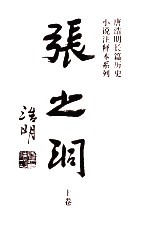 唐浩明长篇历史
小说注释本系列
張之洞
浩明
上卷